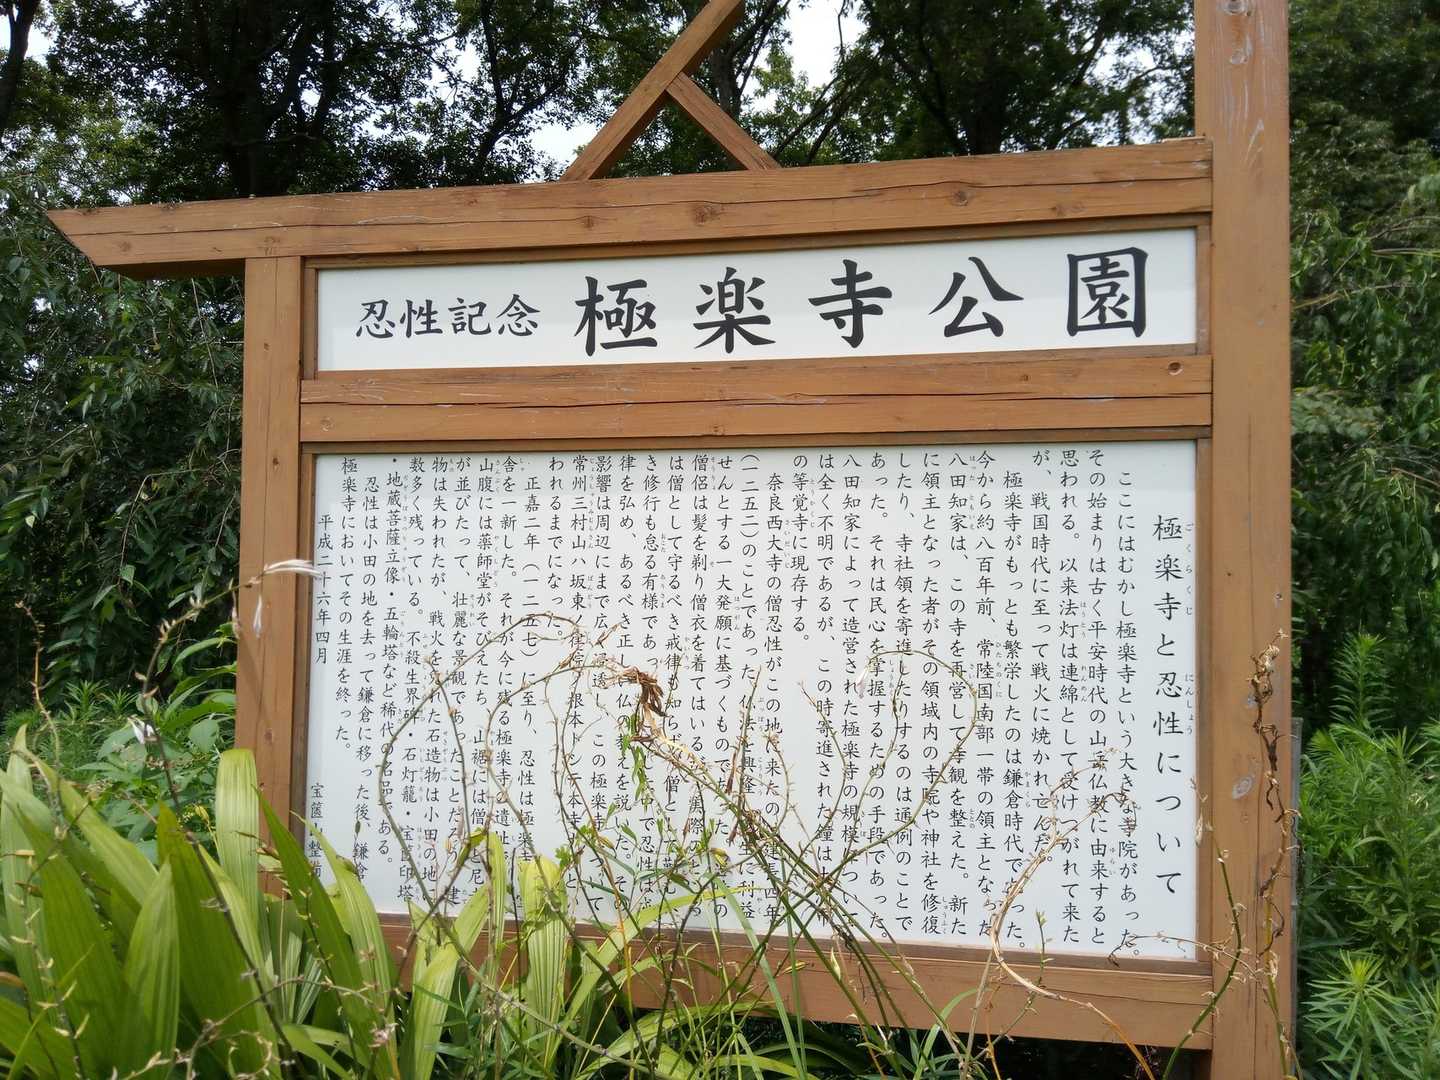 忍性記念 極楽寺公園
極楽寺と忍性について
ここにはむかし極楽寺という大きな寺院があった。
その始まりは古く平安時代の山岳仏教に由来すると
思われる。以来法灯は連綿として受けつがれて来た
が、戦国時代に至って戦火に焼かれ亡んだ。
極楽寺がもっとも繁栄したのは鎌倉時代であった。
今から約八百年前、常陸国南部一帯の領主となった
八田知家は、この寺を再営して寺観を整えた。新た
に領主となった者がその領域内の寺院や神社を修復
したり、寺社領を寄進したりするのは通例のことで
あった。それは民心を掌握するための手段であった。
八田知家によって造営された極楽寺の規模について
は全く不明であるが、この時寄進された鐘は土浦市
の等覚寺に現存する。
奈良西大寺の僧忍性がこの地に来たのは建長四年
(一二五二)のことであった。仏法を興隆し衆生に利益
せんとする一大発願に基づくものであった。
僧侶は髪を剃り僧衣を着てはいるが、実際のところ
は僧として守るべき戒律も知らず、僧として
き修行も怠る有様であった。した中で忍性は戒
律を弘め、あるべき正しい仏の教えを説いた。その
影響は周辺にまで広く浸透し、この極楽寺
常州三村山ハ坂東ノ律院ノ根本トシテ本寺
われるまでになった。
正嘉二年(一二五七)に至り、忍性は極楽寺
舎を一新した。それが今に残る極楽寺の遺址
山腹には薬師堂がそびえたち、山裾には僧
が並びたって、壮麗な景観であったことだろう。建
物は失われたが、戦火を免れた石造物は小田の地に
数多く残っている。不殺生界碑・石灯籠・宝篋印塔
・地蔵菩薩立像・五輪塔など稀代の名品である。
忍性は小田の地を去って鎌倉に移った後、鎌倉
極楽寺においてその生涯を終った。
平成二十六年四月
宝篋 整備